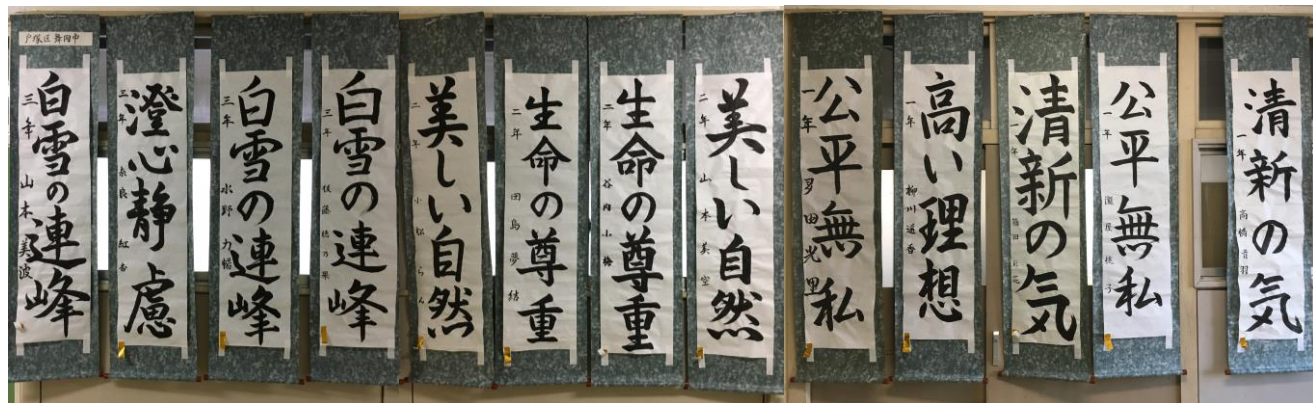 戸塚区 舞岡中
白雪の連峰
三年 山本 美波
澄心静慮
三年 奈良 紅杏
白雪の連峰
三年 水野 乃
白雪の連峰
三年 佐藤 穂乃果
美しい自然
二年 小松 らん
生命の尊重
二年 田島 夢結
生命の尊重
二年 谷内 小梅
美しい自然
二年 山本 美空
公平無私
一年 多田 光里
高い理想
一年 柳川 遥香
清新の気
一年
公平無私
一年
清新の気
一年 高橋 音羽